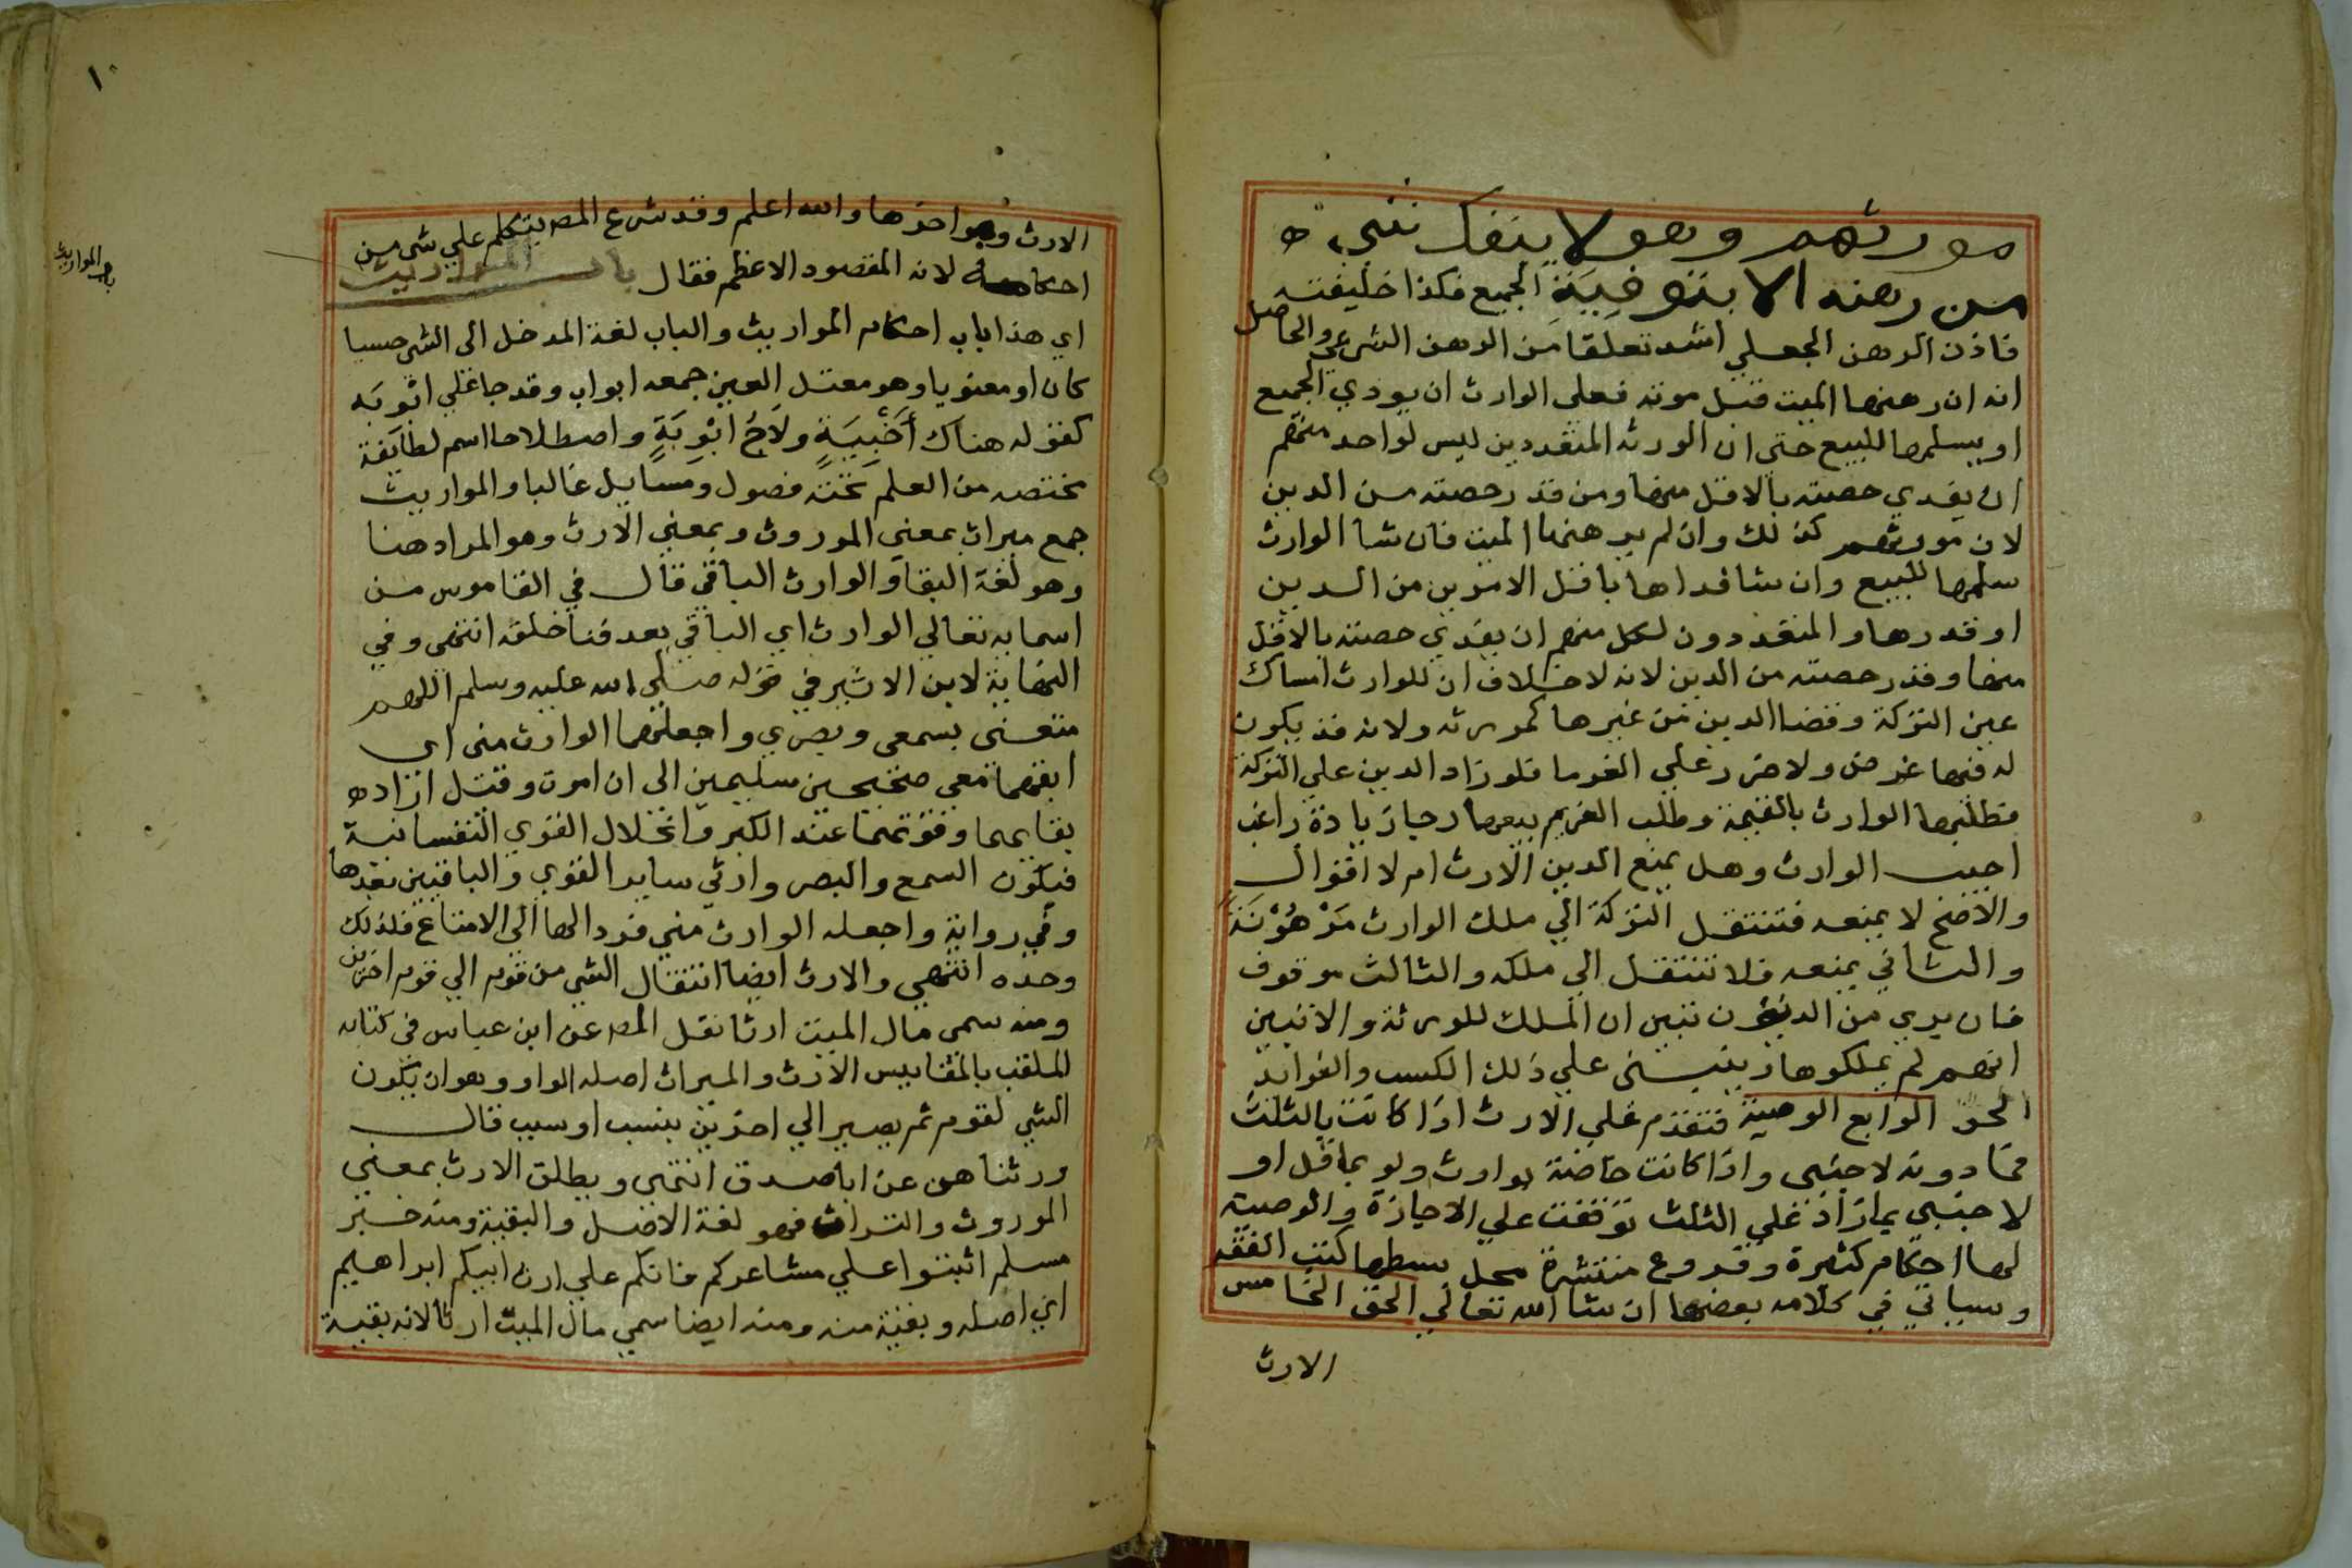 مورثهم وهو لا ينفك شيء
من رهنه الا بتوفِيَةِ الجميع فكذا خليفته
فاذن الرهن الجعلي اشد تعلقا من الرهن الشرعي والحاصل
انه ان رهنها الميت قبل موته فعلى الوارث ان يودي الجميع
او يسلمها للبيع حتى ان الورثه المتعددين ليس لواحد منهم
ان يفدي حصته بالاقل منها ومن قدر حصته من الدين
لان مورثهم كذلك وان لم يرهنها الميت فان شا الوارث
سلمها للبيع وان شا فداها باقل الامرين من الدين
او قدرها والمتعددون لكل منهم ان يفدي حصته بالاقل
منها وقدر حصته من الدين لانه لا خلاف ان للوارث امساك
عين التركة وقضا الدين من غيرها كمورثه ولانه قد يكون
له فيها غرض ولا ضرر علي الغرما فلو زاد الدين علي التركة
فطلبها الوارث بالقيمة وطلب الغريم بيعها رجا زيادة راغب
اجيب الوارث وهل يمنع الدين الارث ام لا اقوال
والاصح لا يمنعه فتنتقل التركة الي ملك الوارث مَرْهُوْنَة
والثاني يمنعه فلا تنتقل الي ملكه والثالث موقوف
فان بري من الديون تبين ان الملك للورثة والا تبين
انهم لم يملكوها وينبني علي ذلك الكسب والفوايد
الحق الرابع الوصية فتقدم علي الارث اذا كانت بالثلث
فما دونه لاجنبي واذا كانت خاصة لوارث ولو بما قل او
لاجنبي بما زاد علي الثلث توقفت علي الاجازة والوصية
لها احكام كثيرة وفروع منتشرة محل بسطها كتب الفقه
وسياتي في كلامه بعضها ان شا الله تعالي الحق الخامس
الارث
١٠
باب المواريث
الارث وهو اخرها والله اعلم وقد شرع المص يتكلم علي شي من
احكامه لانه المقصود الاعظم فقال باب المواريث
اي هذا باب احكام المواريث والباب لغة المدخل الى الشي حسيا
كان او معنويا وهو معتل العين جمعه ابواب وقد جا علي ابوبَه
كقوله هناك أَخْبِيَةٍ ولاجُ ابْوِبَةٍ واصطلاحا اسم لطايفة
مختصه من العلم تحته فصول ومسايل غالبا والمواريث
جمع ميراث بمعني الموروث وبمعني الارث وهو المراد هنا
وهو لغة البقا والوارث الباقي قال في القاموس من
اسمايه تعالي الوارث اي الباقي بعد فنا خلقه انتهى وفي
النهاية لابن الاثير في قوله صلى الله عليه وسلم اللهم
متعني بسمعي وبصري واجعلهما الوارث مني اي
ابقهما معي صحيحين سليمين الى ان اموت وقيل اراد
بقاهما وقوتهما عند الكبر وانحلال القوي النفسانية
فيكون السمع والبصر وارثي ساير القوي والباقيين بعدها
وفي رواية واجعله الوارث مني فرد الها الى الامتاع فلذلك
وحده انتهي والارث ايضا انتقال الشي من قوم الي قوم اخرين
ومنه سمى مال الميت ارثا نقل المص عن ابن عباس في كتابه
الملقب بالمقاييس الارث والميراث اصله الواو وهو ان يكون
الشي لقوم ثم يصير الي اخرين بنسب او سبب قال
ورثناهن عن ابا صدق انتهى ويطلق الارث بمعني
الموروث والتراث فهو لغة الاصل والبقية ومنه خبر
مسلم اثبتوا علي مشاعركم فانكم علي ارث ابيكم ابراهيم
اي اصله وبقية منه ومنه ايضا سمي مال الميت ارثا لانه بقية